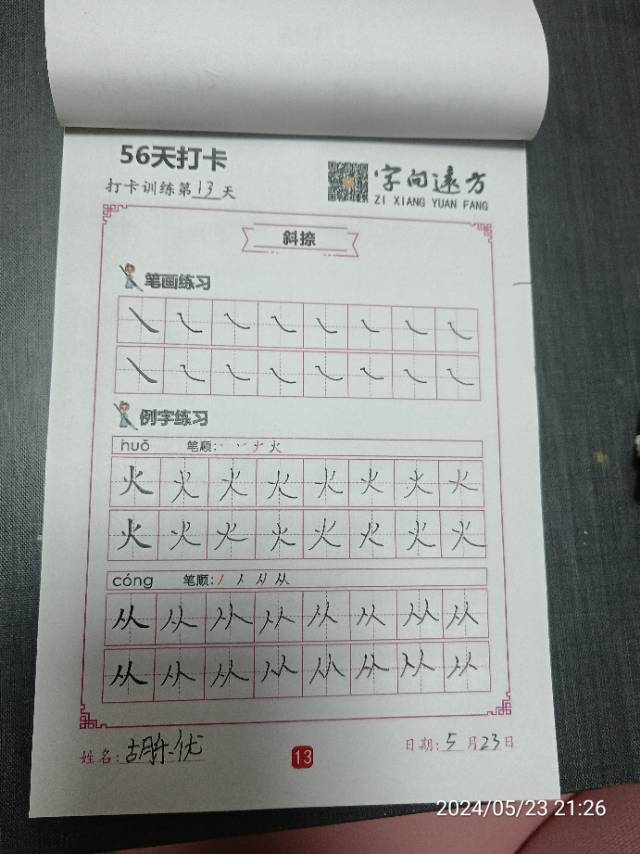 56天打卡
打卡训练第13天
字向遠方
ZI XIANG YUAN FANG
斜捺
笔画练习
例字练习
huǒ 笔顺:
火火火火火火火火
火火火火火火火火
cóng 笔顺:
从从从从从从从从
从从从从从从从从
姓名:
13
日期:5月23日
2024/05/23 21:26